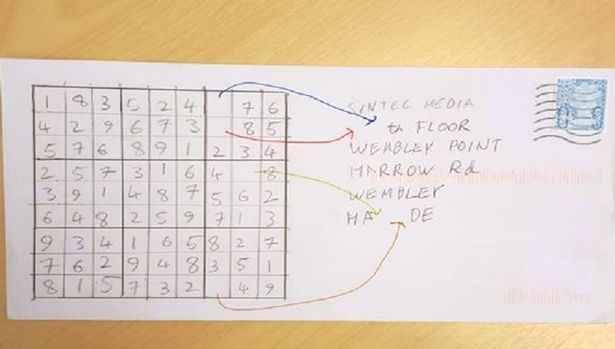 1 8 3 5 2 4 7 6
4 2 9 6 7 3 8 5
5 7 6 8 9 1 2 3 4
2 5 7 3 1 6 4 8
3 9 1 4 8 7 5 6 2
6 4 8 2 5 9 7 1 3
9 3 4 1 6 5 8 2 7
7 6 2 9 4 8 3 5 1
8 1 5 7 3 2 4 9
SINTEC MEDIA
th FLOOR
WEMBLEY POINT
HARROW Rd
WEMBLEY
HA DE